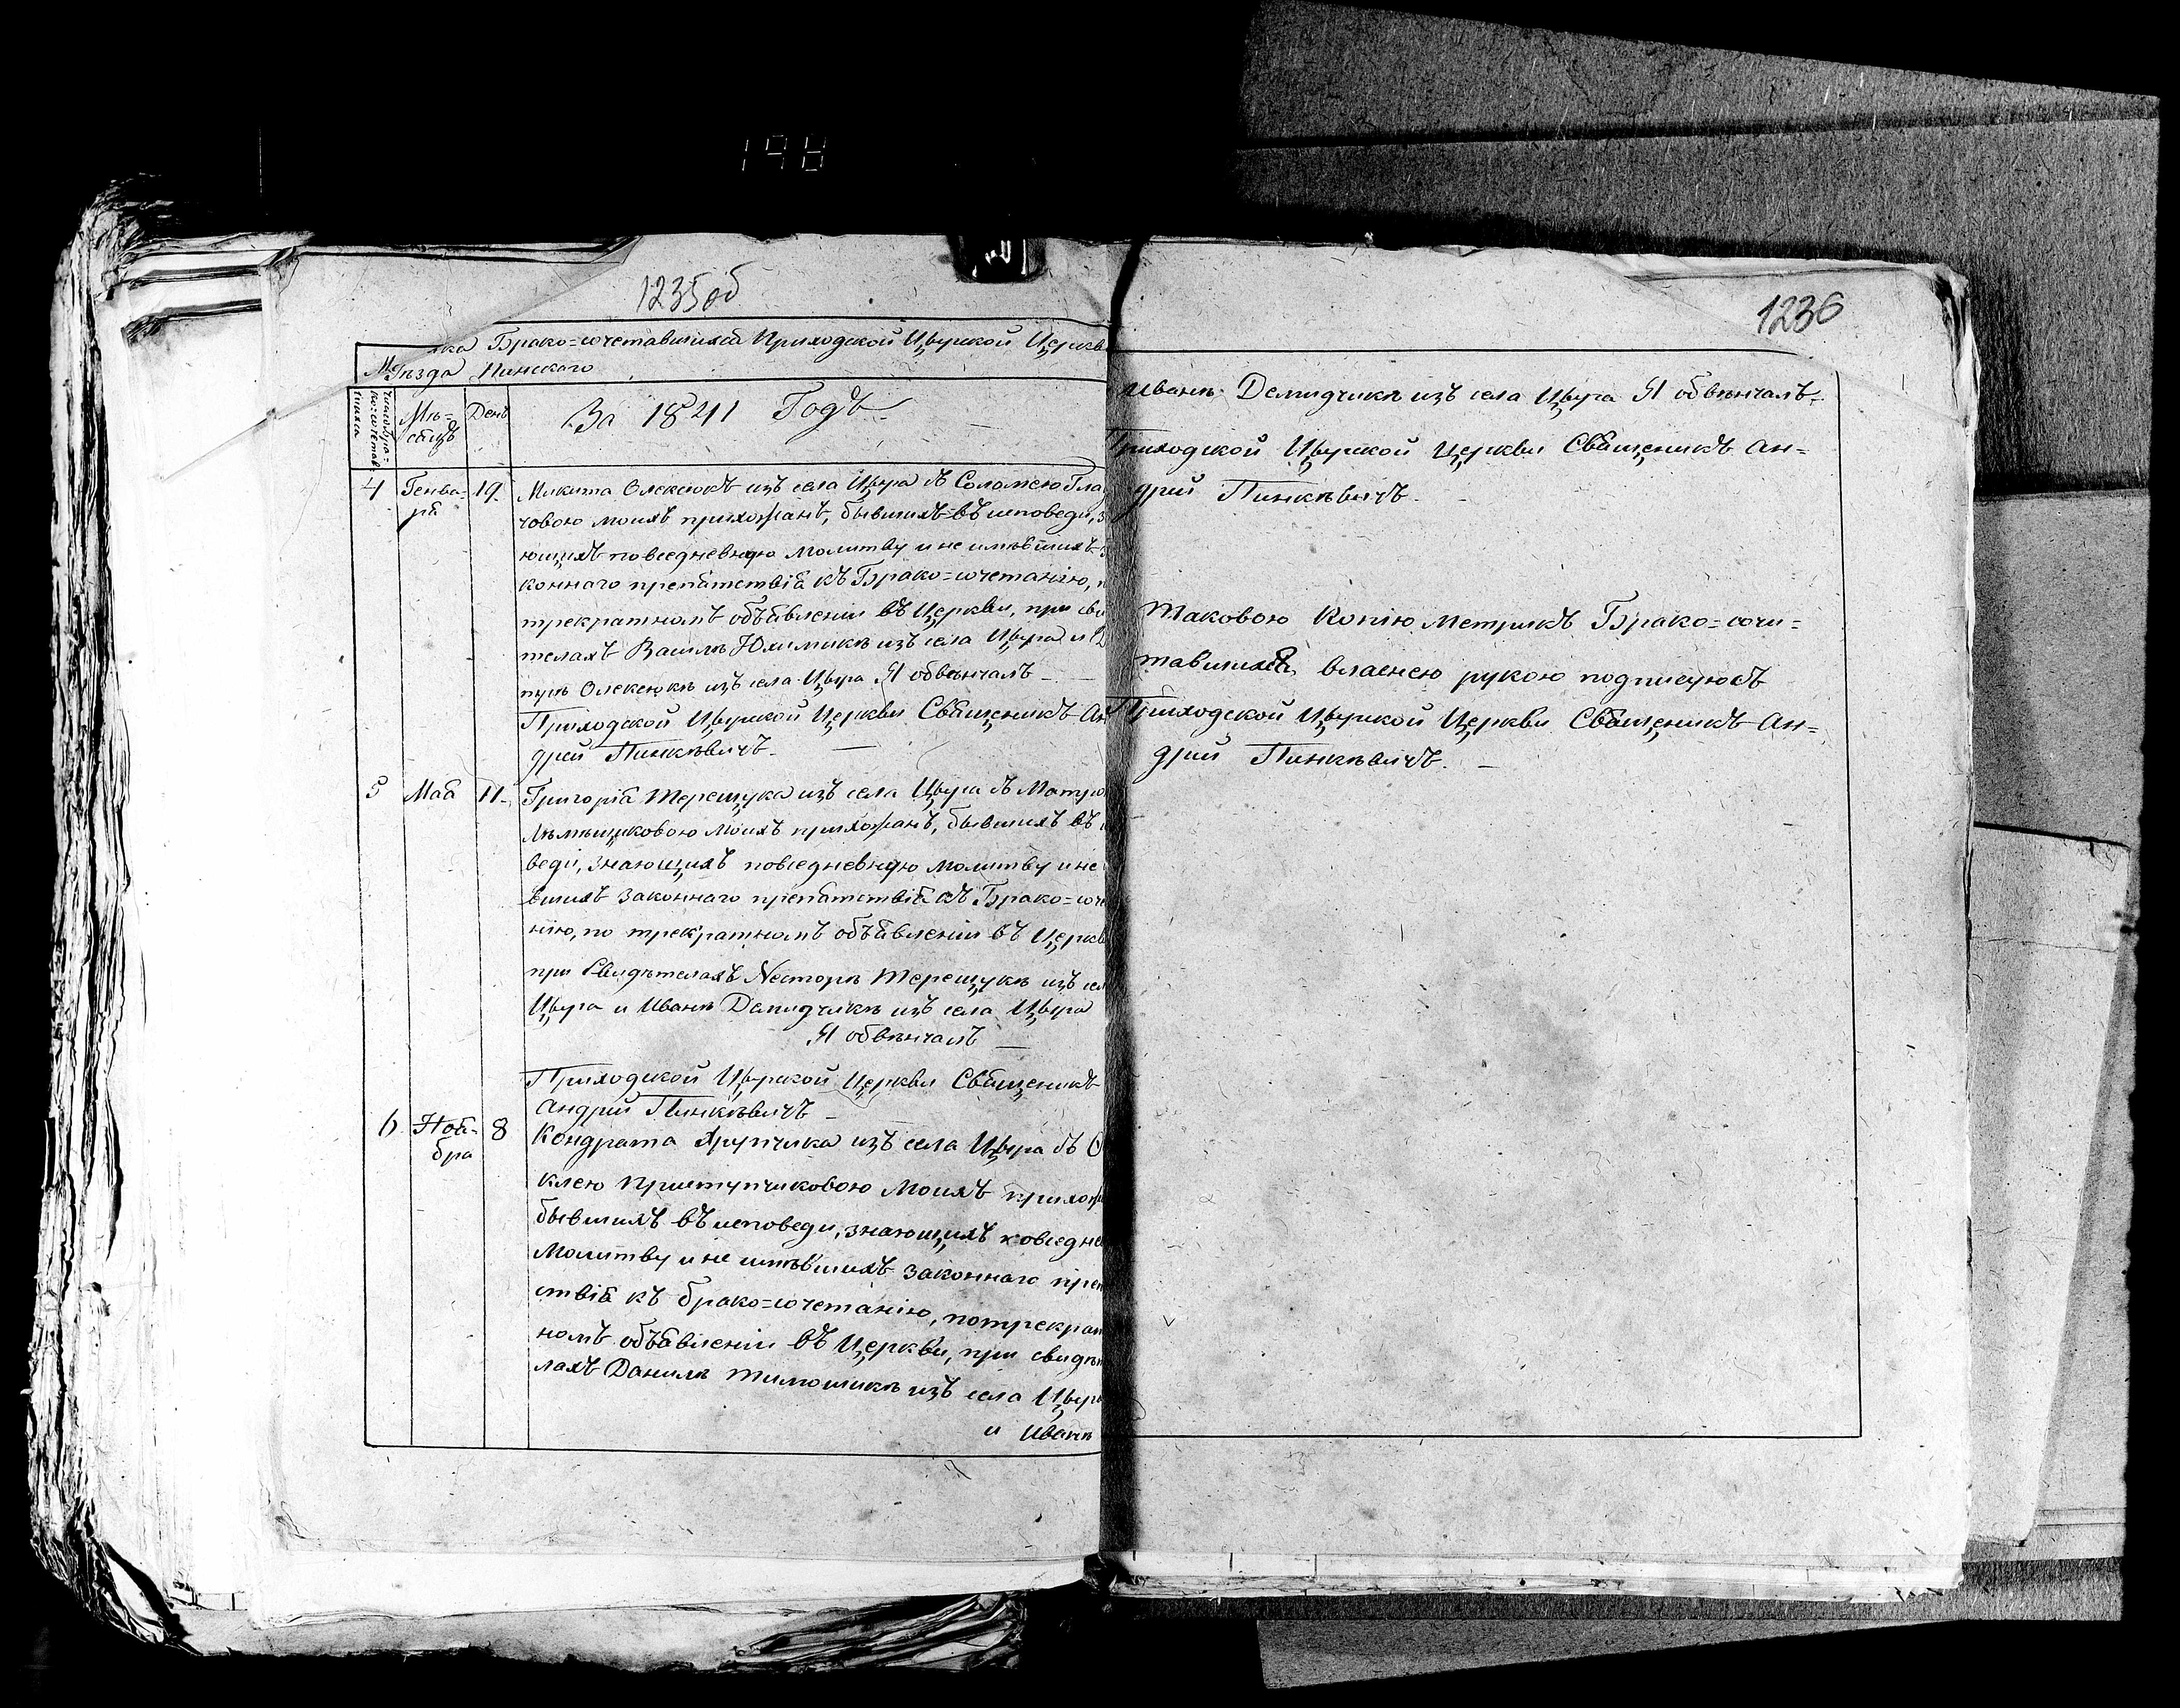 198
1235 об
Брако=сочетавшихся Приходской Цѣрской Церкв
Уѣзда Пинскаго
Число бра-
косочетав
шихся
Мѣ=
сяцъ
День
За 1841 Годъ
4 Генва= 19. Микита Олексюкъ изъ села Цѣра съ Соломею Гла
ря човою моихъ прихожанъ, бывшихъ въ исповеди, з
ющихъ повседневную молитву и не имѣвшихъ з
коннаго препятствія къ Брако=сочетанію, п
трекратномъ объявлении въ Церкви, при сви
телахъ Василѣ Юхимикѣ изъ села Цѣра и
пук Олексюкѣ изъ села Цѣра Я обвѣнчалъ
Приходской Цѣрской Церкви Священикъ Ан
дрей Пинкѣвичъ.
5 Мая 11. Григорія Терещука изъ села Цѣра съ Матро
моихъ прихожанъ, бывшихъ въ
веди, знающихъ повседневную молитву и не
вшихъ законнаго препятствія къ Брако=соче
нію, по трекратномъ объявлении въ Церкв
при Свидѣтелахъ Несторѣ Терещукѣ изъ сел
Цѣра и Иванѣ Демидчикѣ изъ села Цѣра
Я обвѣнчалъ
Приходской Цѣрской Церкви Священикъ
Андрей Пинкѣвичъ
6 Ноя= 8 Кондрата Хрупчика изъ села Цѣра съ
бра клею Приступчиковою моихъ прихож
бывшихъ въ исповеди, знающихъ повседне
молитву и не имѣвшихъ законнаго препя
ствія къ брако=сочетанію, по трекрат
номъ объявлении въ Церкви, при свидѣт
лахъ Данилѣ Тимошикѣ изъ села Цѣра
и Иванѣ
1236
Иванѣ Демидчикѣ изъ села Цѣра Я обвѣнчалъ.
Приходской Цѣрской Церкви Священикъ Ан=
дрей Пинкѣвичъ.
Таковою Копію Метрикъ Брако=сочи=
тавшихся власнею рукою подписуюсъ
Приходской Цѣрской Церкви Священикъ Ан=
дрей Пинкѣвичъ.